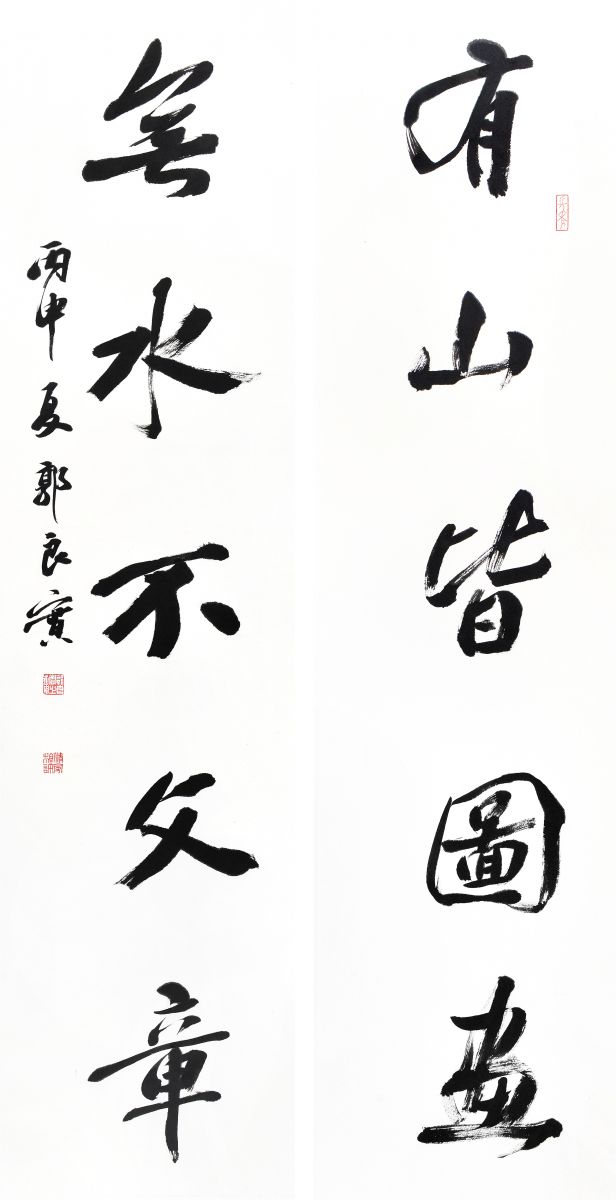 有山皆圖畫
無水不文章
丙申夏郭良實